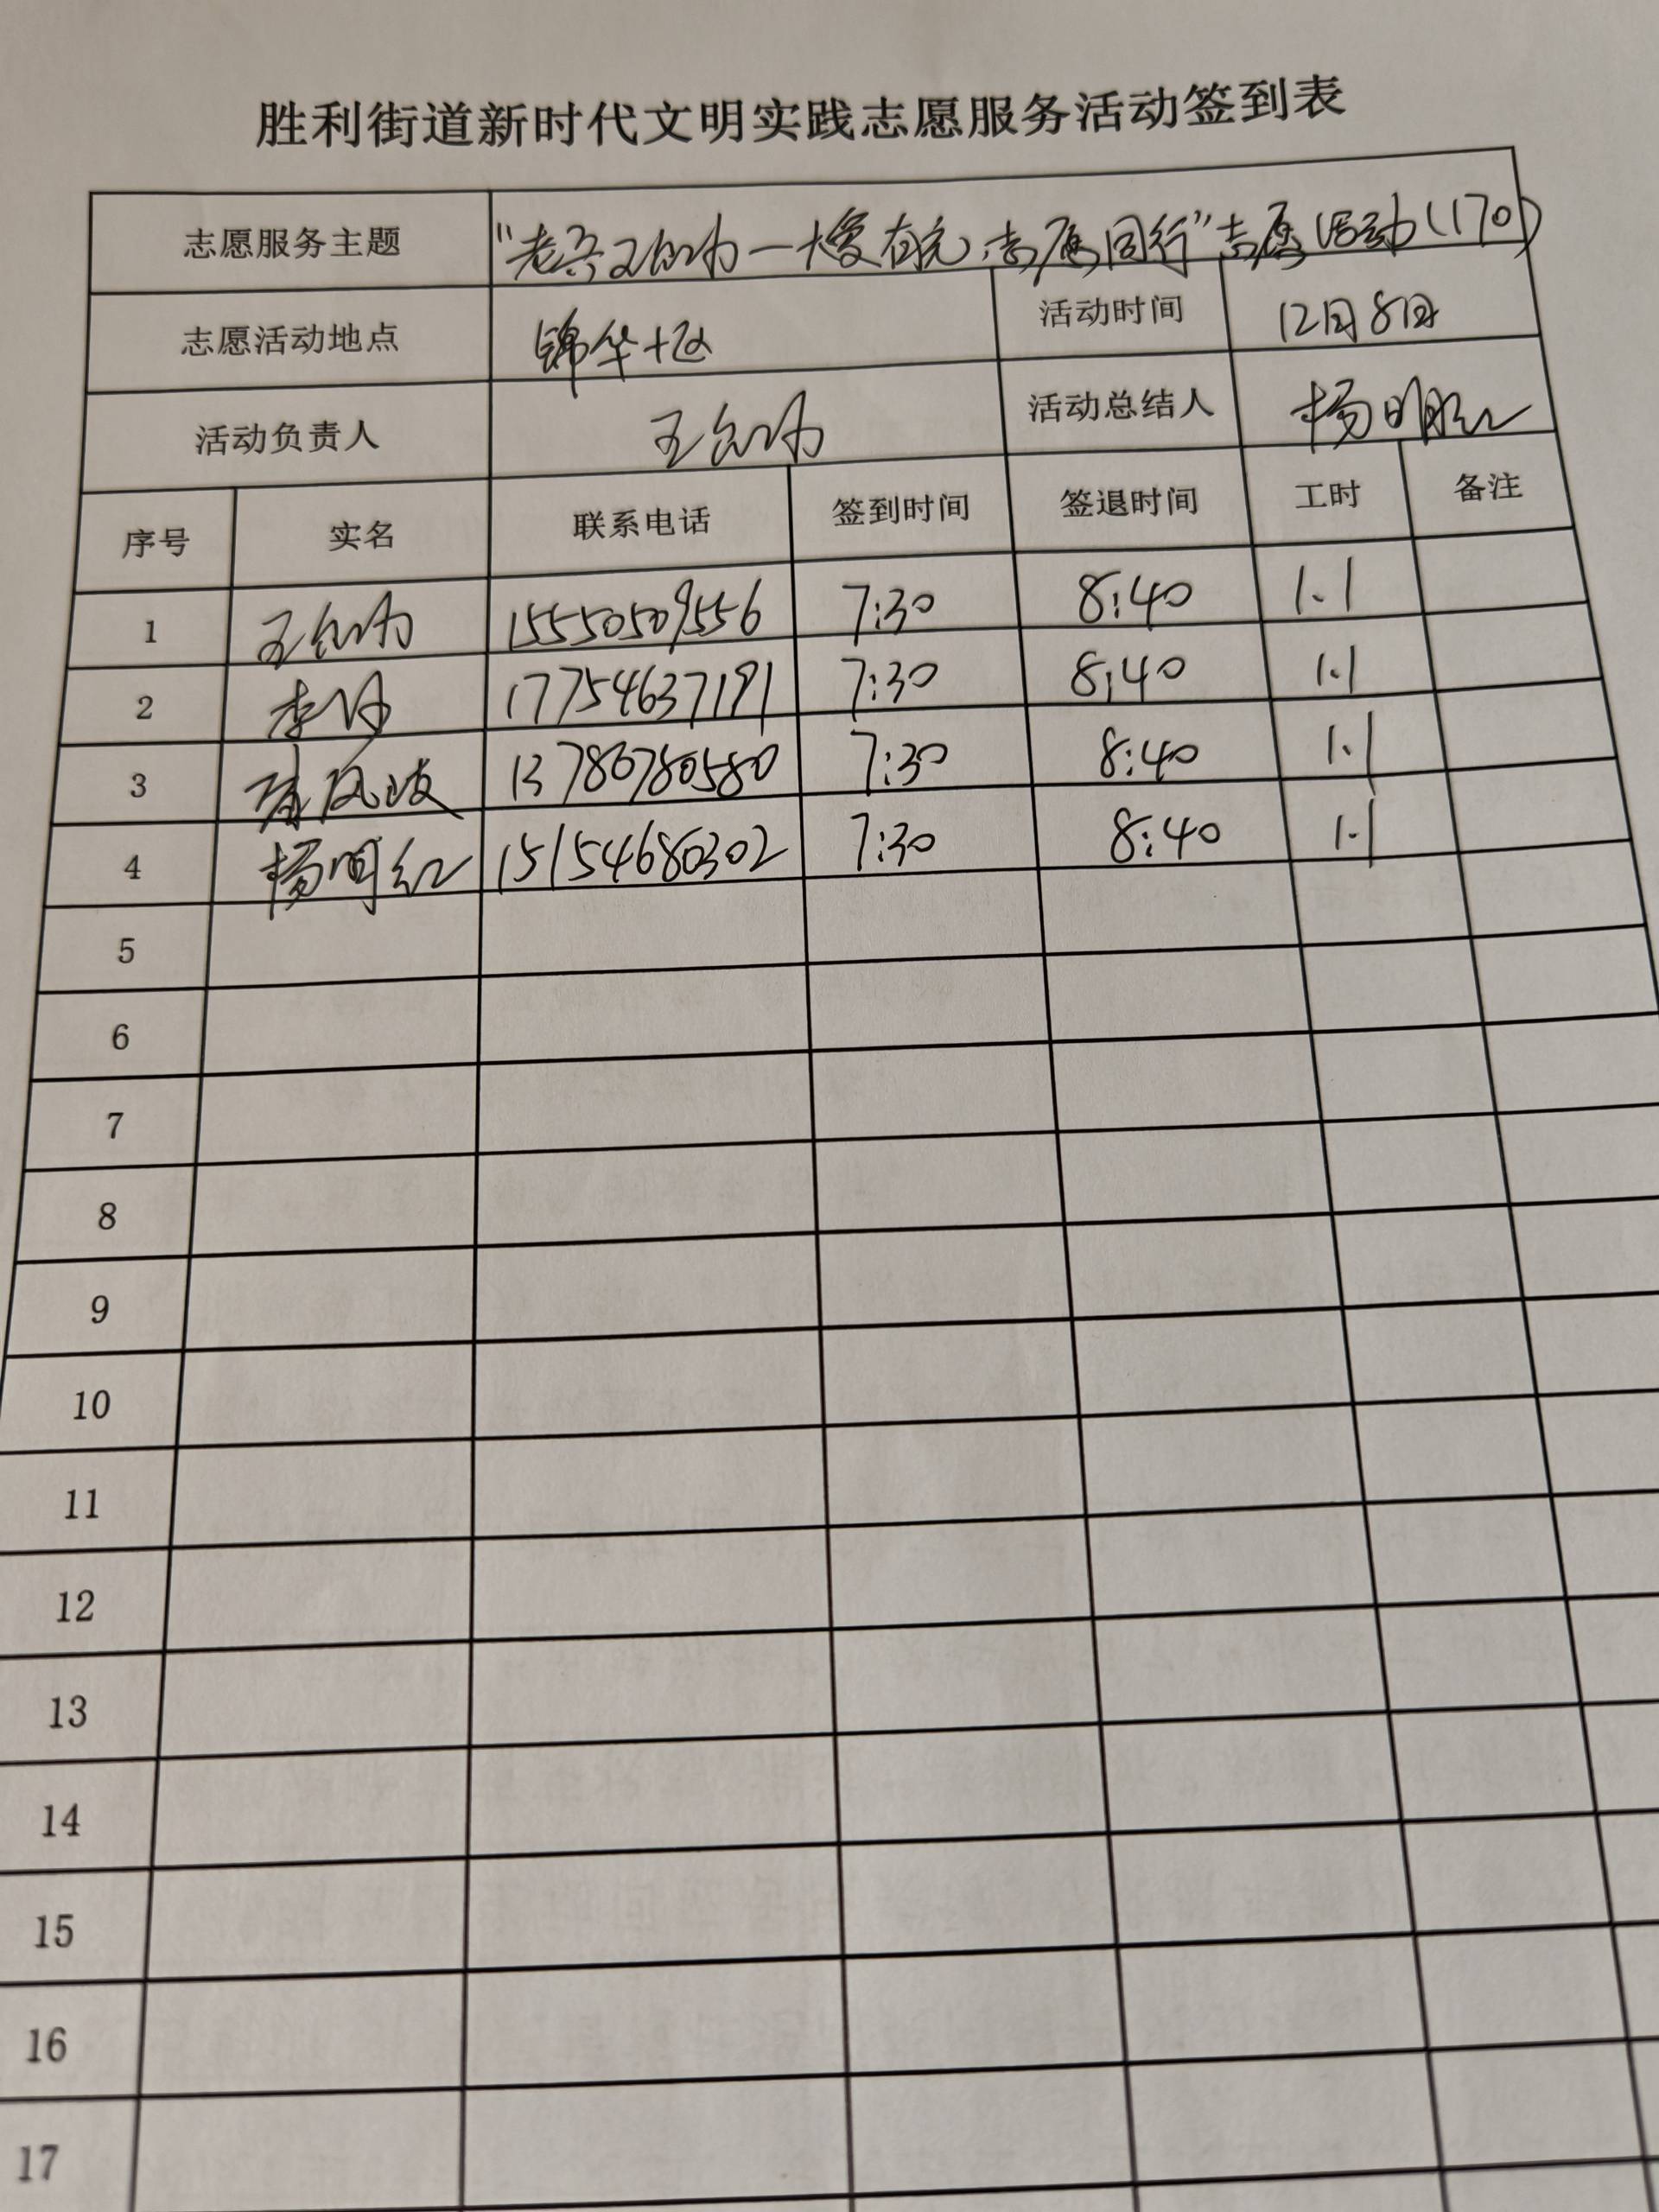 胜利街道新时代文明实践志愿服务活动签到表
志愿服务主题 "老兵 一 爱有光,志愿同行"志愿活动(170)
志愿活动地点 锦华十区 活动时间 12月8日
活动负责人 王 活动总结人 杨明红
序号 实名 联系电话 签到时间 签退时间 工时 备注
1 王 15550509556 7:30 8:40 1.1
2 李 17754637191 7:30 8:40 1.1
3 风波 13780780580 7:30 8:40 1.1
4 杨明红 15154680302 7:30 8:40 1.1
5
6
7
8
9
10
11
12
13
14
15
16
17